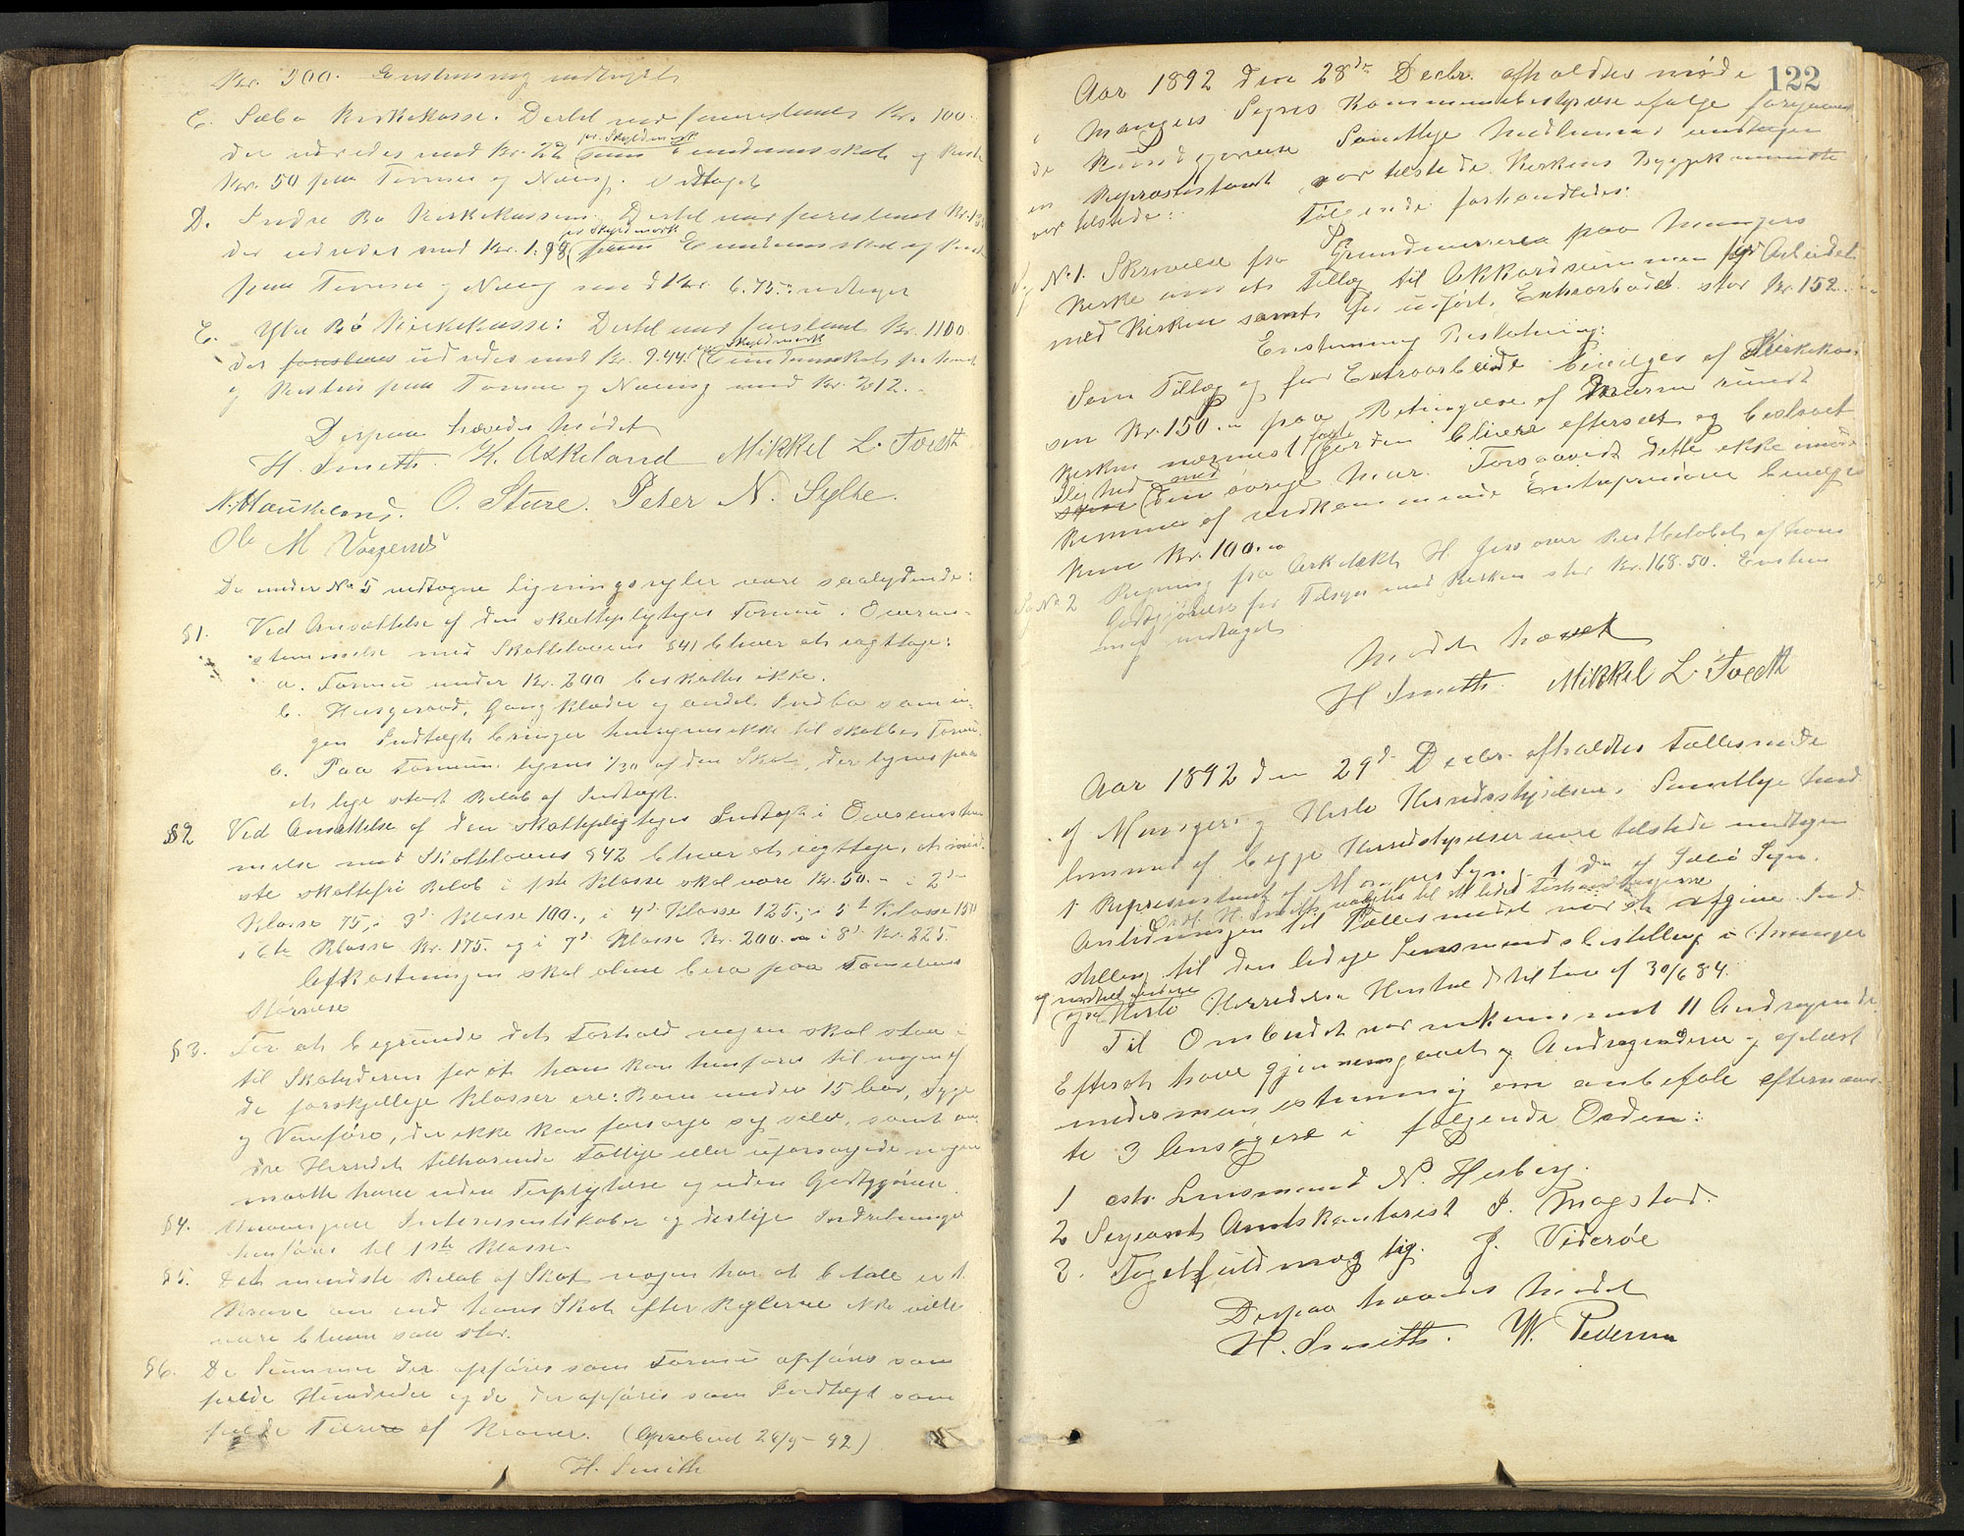 Kr. 500. Enstemmig vedtaget
C. Sæbø Kirkekasse. Dertil var foreslaaet Kr. 100.
der udredes med Kr. 22 (pr. Skyldmark som Eiendomsskat og Resten
Kr. 50 paa Formue og Næring. Vedtaget
D. Indre Bø Kirkekasse. Dertil var foreslaaet Kr.
der udredes med Kr. 1.98 (pr Skyldmark som Eiendomsskat og Resten
paa Formue og Næring med Kr. 6.75. vedtaget
E. Ytre Bø Kirkekasse: Dertil var foreslaaet Kr. 1100
der foreslaaes udredes med Kr. 9.44. (pr Skyldmark Eiendomsskat
og Resten paa Formue og Næring med Kr. 212.
Derpaa hævedes Mødet
H. Smith. K. Askeland Mikkel L. Tveth
N. Haukeland. O. Sture. Peter N. Sylte.
Ole M Vaagenes
De under No 5 vedtagne Ligningsregler vare saalydende:
§1. Ved Ansættelse af den skattepligtiges Formue i Overens-
stemmelse med Skattelovens §41 bliver at iagttage:
a. Formue under Kr. 200 beskattes ikke.
b. Husgeraad, Gangklæder og andet Indbo som in-
gen Indtægt bringer henregnes ikke til skatbar Formue.
c. Paa Formuen lignes 1/30 af den Skat, der lignes paa
et lige stort Beløb af Indtægt.
§2 Ved Ansættelse af den skattepligtiges Indtægt i Overensstem-
melse med Skattelovens §42 bliver at iagttage, at mind-
ste skattefri Beløb i 1ste Klasse skal være Kr. 50.- i 2den
Klasse 75, i 3d Klasse 100., i 4d Klasse 125., i 5t Klasse 150
i 6te Klasse Kr. 175. og i 7d Klasse Kr. 200. i 8d Kr. 225.
Afkastningen skal alene bero paa Familiens
Størrelse
§3. For at begrunde det Forhold nogen skal staa i
til Skatyderen for at han kan henføres til nogen af
de forskjellige Klasser ere: Børn under 15 Aar, Syge
og Vanføre, der ikke kan forsørge sig selv, samt an-
dre Herredet tilhørende Fattige eller uforsørgede nogen
maatte have uden Forpligtelse og uden Godtgjørelse.
§4. Interessentskaber og deslige Indretninger
henføres til 1ste Klasse.
§5. Det mindste Beløb af Skat nogen har at betale er 1
Krone om end hans Skat efter Reglerne ikke vilde
være bleven saa stor.
§6. De Summer der opføres som Formue opføres som
fulde Hundreder og de der opføres som Indtægt som
fulde Tiere af Kroner. (Approberet 24/9-92)
H. Smith
122
Aar 1892 den 28de Decbr. afholdtes møde
i Mangers Sogns Kommunebestyrelse ifølge forgaaende
Kundgjørelse Samtlige Medlemmer undtagen
en Repræsentant var tilstede. Kirkens Byggekommitte
var tilstede: Følgende forhandledes:
No 1. Skrivelse fra Grundmurerne paa Mangers
Kirke om et Tillæg til Akkordsummen for Arbeidet
med Kirken samt for udført Extraarbeide stor Kr. 152.
Enstemmig Beslutning:
Som Tillæg og for Extraarbeide bevilges af Kirkekas-
sen Kr. 150.- paa Betingelse af Murene rundt
Kirken nærmest (forste Jorden bliver efterseet og beslaaet
lig hed med (den øvrige Mur. Forsaavidt dette ikke imøde-
kommes af vedkommende Entreprenører bevilges
kun Kr. 100.-
No 2 Regning fra Arkitekt H. Jess over Restbeløbet af hans
Godtgjørelse for Tilsyn med Kirken stor Kr. 168.50. Enstem-
mig vedtaget
Mødet hævet
H Smith. Mikkel L. Tveth
Aar 1892 den 29d Decbr. afholdtes Fællesmøde
af Mangers og Herlø Herredsstyrelser. Samtlige Med-
lemmer af begge Herredstyrelser vare tilstede undtagen
1 Repræsentant af Mangers Sogn og 1 do af Sæbø Sogn.
Ordf. H. Smith valgtes til at lede Forhandlingerne
Anledningen til Fællesmødet var at afgive Ind-
stilling til den ledige Lensmandsbestilling i Manger
og Herlø Herreder i Henhold til Lov af 30/6 84.
Til Ombudet var indkommet 11 Andragender.
Efterat have gjennemgaaet Andragenderne og oplæst
enedes man estemmig om anbefale efternævn-
te 3 Ansøgere i følgende Orden:
1 cst. Lensmand N. Husberg.
2 Sergeant, Amtskontorist I. Mogstad.
3. Fogetfuldmægtig. J. Viderøe
Derpaa hævedes Mødet
H. Smith. W. Pedersen